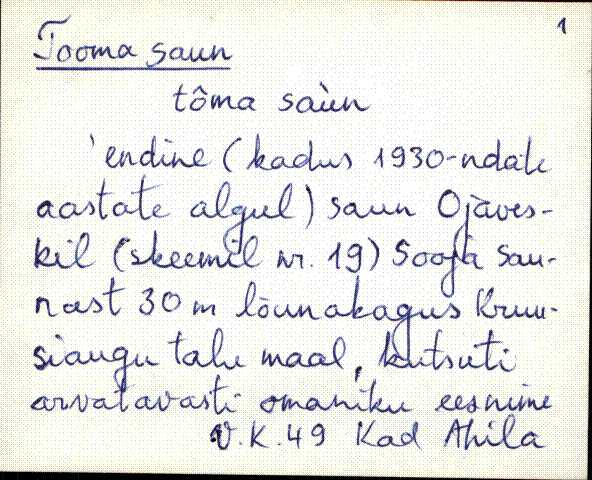 1
Tooma saun
tôma saùn
'endine (kadus 1930-ndate
aastate algul) saun Ojaves-
kil (skeemil nr. 19) Sooja sau-
nast 30 m lõunakagus Kruu-
siaugu talu maal, kutsuti
arvatavasti omaniku eesnime
V.K.49 Kad Ahila